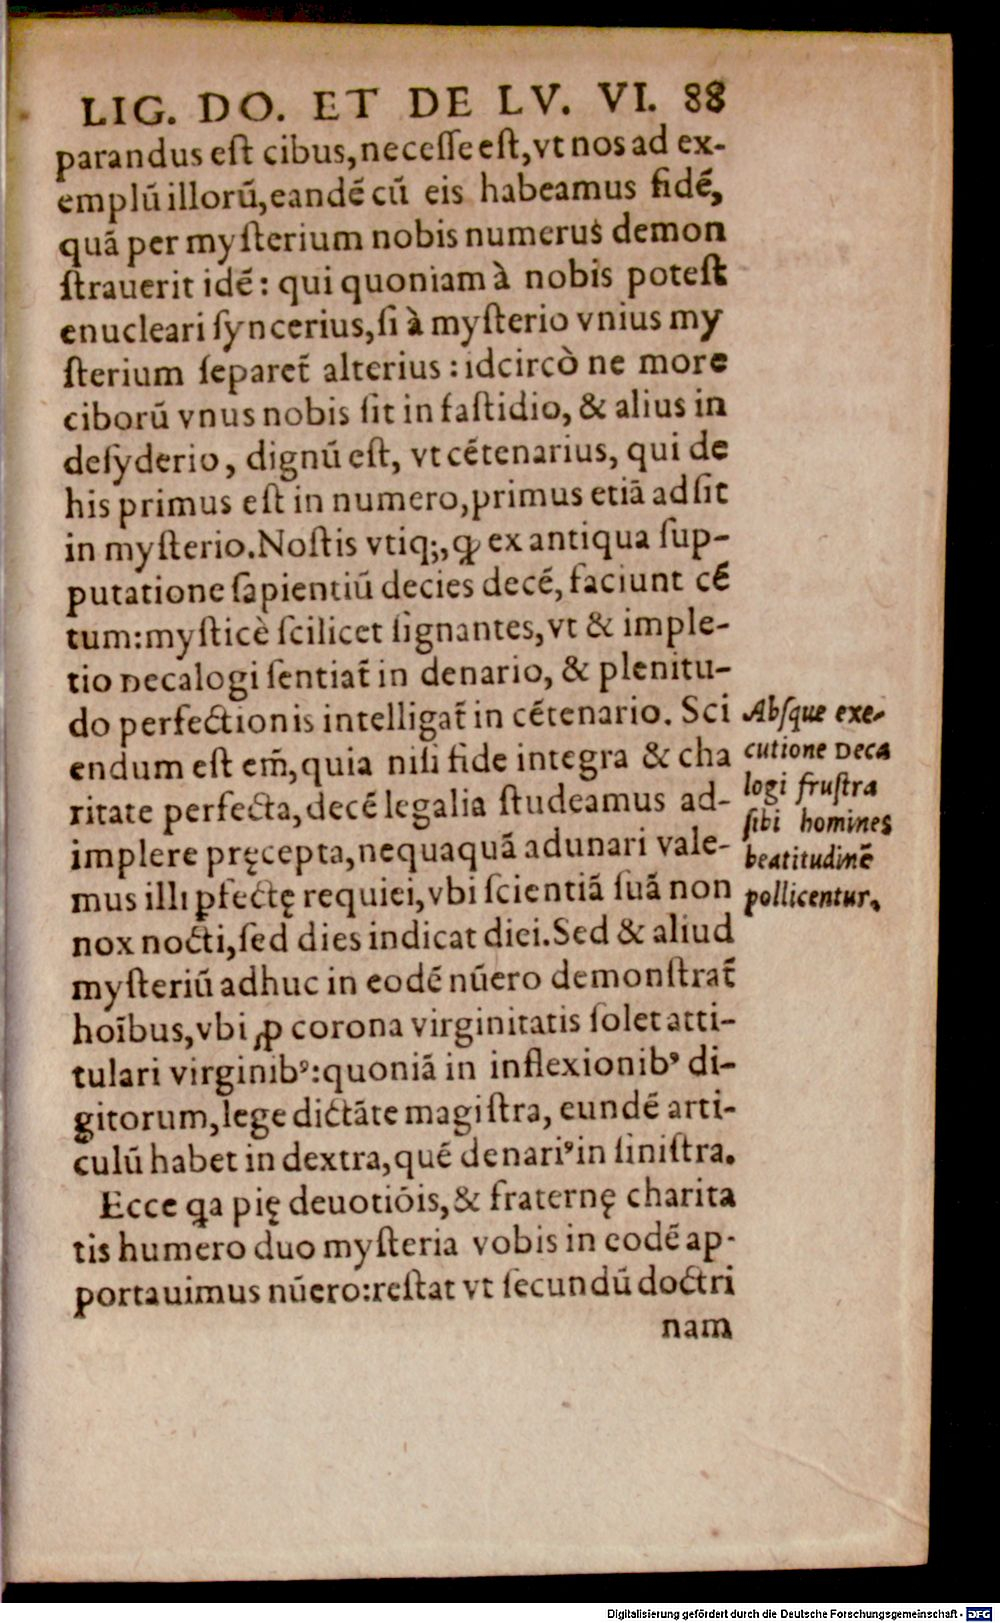 LIG. DO. ET DE LV. VI. 88
parandus eſt cibus, neceſſe eſt, vt nos ad ex-
emplū illorū, eandē cū eis habeamus fidē,
quā per myſterium nobis numerus demon
ſtrauerit idē: qui quoniam à nobis poteſt
enucleari ſyncerius, ſi à myſterio vnius my
ſterium ſeparet̃ alterius: idcircò ne more
ciborū vnus nobis ſit in faſtidio, & alius in
deſyderio, dignū eſt, vt cētenarius, qui de
his primus eſt in numero, primus etiā adſit
in myſterio. Noſtis vtiq;, ꝙ ex antiqua ſup-
putatione ſapientiū decies decē, faciunt cē
tum: myſticè ſcilicet ſignantes, vt & imple-
tio decalogi ſentiat̃ in denario, & plenitu-
do perfectionis intelligat̃ in cētenario. Sci
endum eſt em̃, quia niſi fide integra & cha
ritate perfecta, decē legalia ſtudeamus ad-
implere pręcepta, nequaquā adunari vale-
mus illi ꝑfectę requiei, vbi ſcientiā ſuā non
nox nocti, ſed dies indicat diei. Sed & aliud
myſteriū adhuc in eodē nūero demonſtrat̃
hoĩbus, vbi ꝓ corona virginitatis ſolet atti-
tulari virginibꝰ: quoniā in inflexionibꝰ di-
gitorum, lege dictāte magiſtra, eundē arti-
culū habet in dextra, quē denariꝰ in ſiniſtra.
Ecce qa pię deuotiōis, & fraternę charita
tis humero duo myſteria vobis in eodē ap-
portauimus nūero: reſtat vt ſecundū doctri
nam
Abſque exe-
cutione deca
logi fruſtra
ſibi homines
beatitudinē
pollicentur.
Digitalisierung gefördert durch die Deutsche Forschungsgemeinschaft - DFG